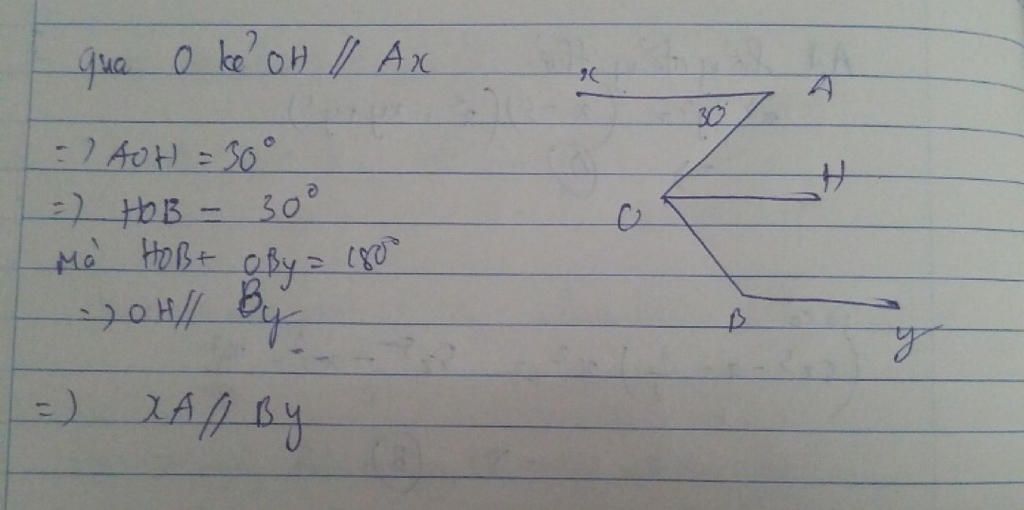 qua O kẻ OH // Ax
=) AOH = 30°
=) HOB = 30°
Mà HOB + OBy = 180°
=) OH // By
=) xA // By
x
A
30
H
O
B
y